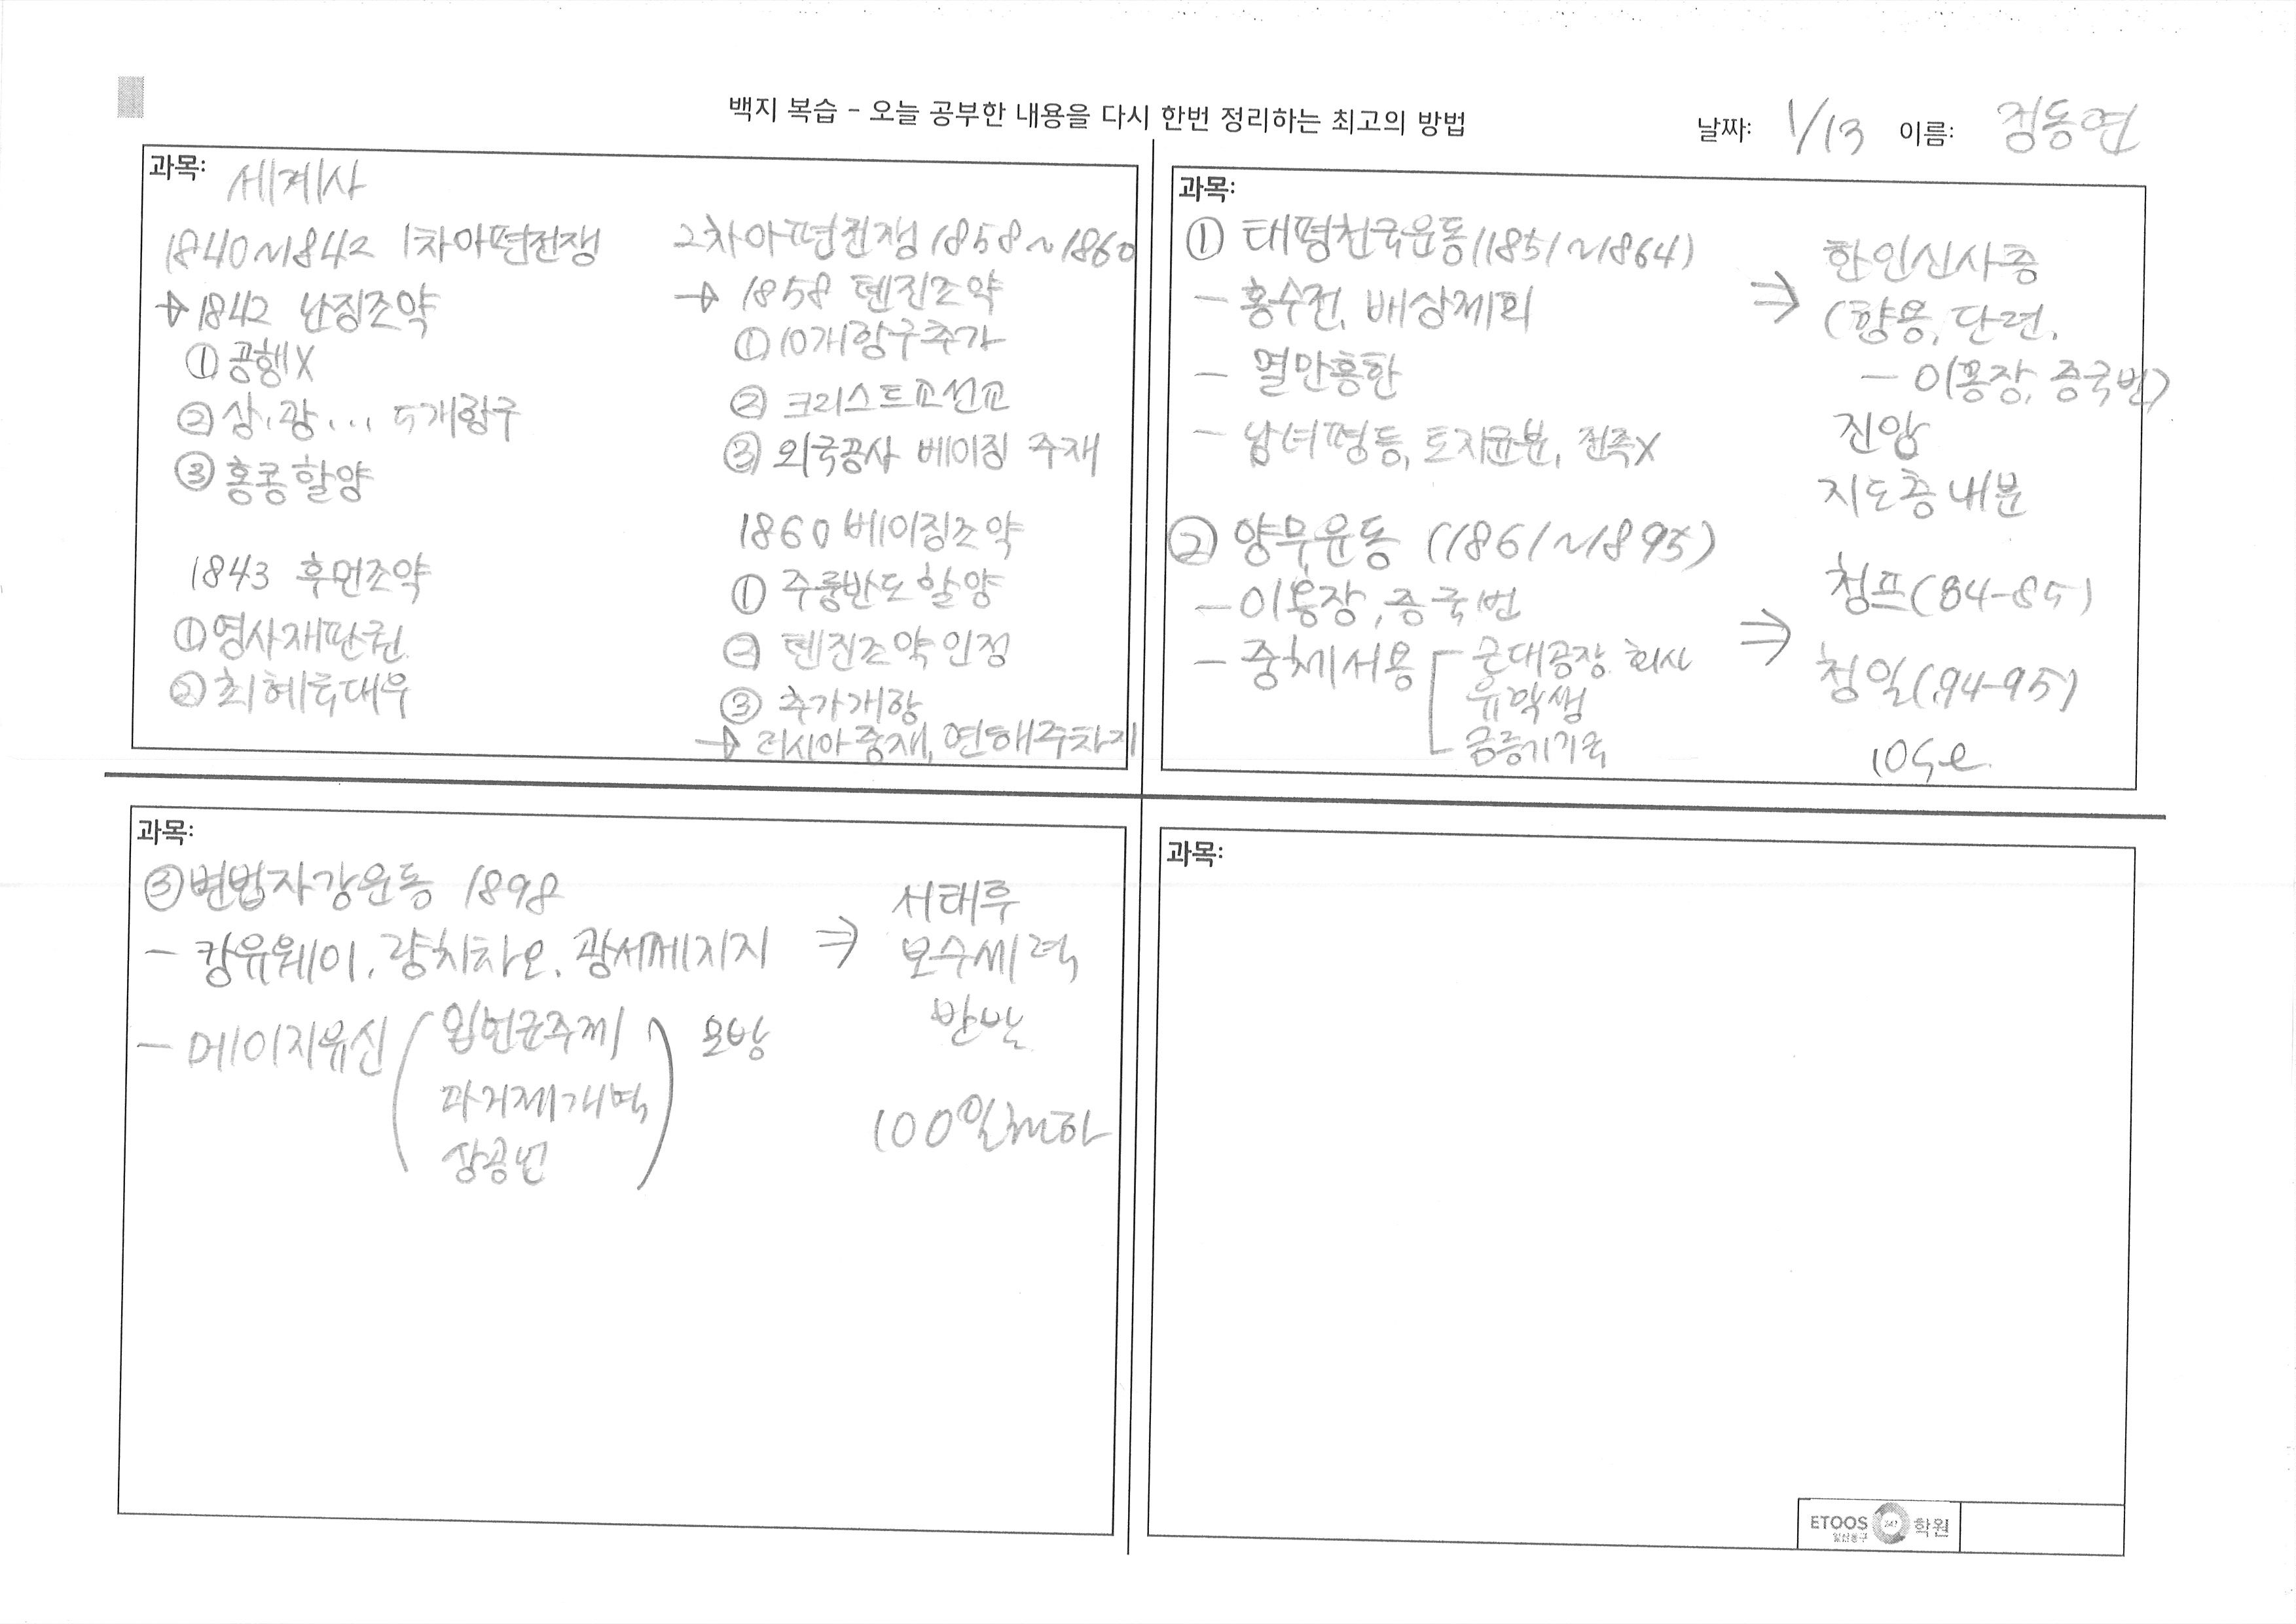 백지 복습 - 오늘 공부한 내용을 다시 한번 정리하는 최고의 방법
날짜: 1/13 이름: 정동연
과목: 세계사
1840~1842 1차아편전쟁
→ 1842 난징조약
① 공행X
② 상, 광... 5개항구
③ 홍콩할양
1843 후먼조약
① 영사재판권
② 최혜국대우
2차아편전쟁 1858~1860
→ 1858 톈진조약
① 10개항구추가
② 크리스트교선교
③ 외국공사 베이징 주재
1860 베이징조약
① 주룽반도할양
② 톈진조약인정
③ 추가개항
→ 러시아중재, 연해주차지
과목:
① 태평천국운동(1851~1864)
- 홍수전, 배상제회
- 멸만흥한
- 남녀평등, 토지균분, 전족X
⇒ 한인신사층
(향용, 단련.
- 이홍장, 증국번)
진압
지도층내분
② 양무운동 (1861~1895)
- 이홍장, 증국번
- 중체서용 근대공장. 회사
유학생
금릉기기국
⇒ 청프(84-85)
청일(94-95)
과목:
③ 변법자강운동 1898
- 캉유웨이, 량치차오, 광서제지지
- 메이지유신 (입헌군주제
과거제개혁
상공업) 모방
⇒ 서태후
보수세력
반발
100일천하
과목:
ETOOS 247 학원